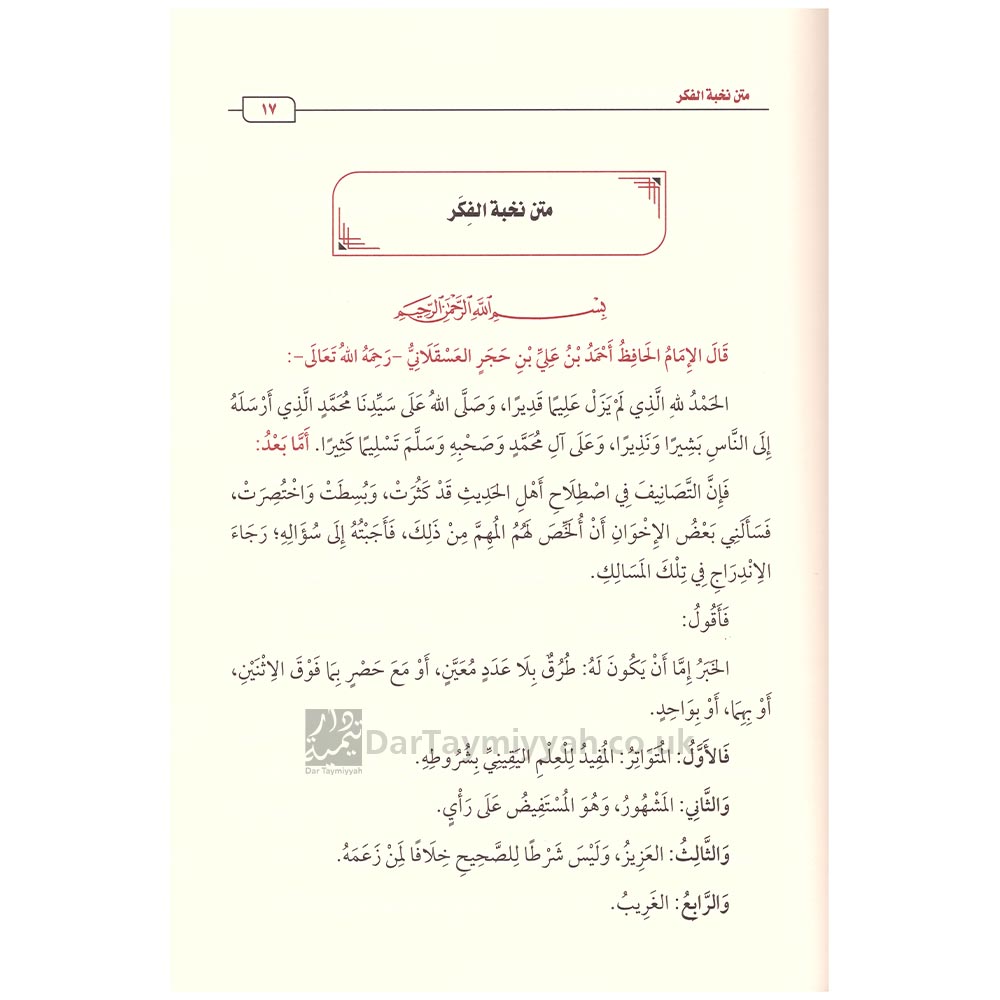 متن نخبة الفكر
١٧
متن نخبة الفِكَر
بِسْمِ اللَّهِ الرَّحْمَٰنِ الرَّحِيمِ
قَالَ الإِمَامُ الحَافِظُ أَحْمَدُ بْنُ عَلِيِّ بْنِ حَجَرٍ العَسْقَلَانِيُّ -رَحِمَهُ اللهُ تَعَالَى-:
الحَمْدُ للهِ الَّذِي لَمْ يَزَلْ عَلِيمًا قَدِيرًا، وَصَلَّى اللهُ عَلَى سَيِّدِنَا مُحَمَّدٍ الَّذِي أَرْسَلَهُ
إِلَى النَّاسِ بَشِيرًا وَنَذِيرًا، وَعَلَى آلِ مُحَمَّدٍ وَصَحْبِهِ وَسَلَّمَ تَسْلِيمًا كَثِيرًا. أَمَّا بَعْدُ:
فَإِنَّ التَّصَانِيفَ فِي اصْطِلَاحِ أَهْلِ الحَدِيثِ قَدْ كَثُرَتْ، وَبُسِطَتْ وَاخْتُصِرَتْ،
فَسَأَلَنِي بَعْضُ الإِخْوَانِ أَنْ أُلَخِّصَ لَهُمُ المُهِمَّ مِنْ ذَلِكَ، فَأَجَبْتُهُ إِلَى سُؤَالِهِ؛ رَجَاءَ
الِانْدِرَاجِ فِي تِلْكَ المَسَالِكِ.
فَأَقُولُ:
الخَبَرُ إِمَّا أَنْ يَكُونَ لَهُ: طُرُقٌ بِلَا عَدَدٍ مُعَيَّنٍ، أَوْ مَعَ حَصْرٍ بِمَا فَوْقَ الِاثْنَيْنِ،
أَوْ بِهِمَا، أَوْ بِوَاحِدٍ.
فَالأَوَّلُ: المُتَوَاتِرُ: المُفِيدُ لِلْعِلْمِ اليَقِينِيِّ بِشُرُوطِهِ.
وَالثَّانِي: المَشْهُورُ، وَهُوَ المُسْتَفِيضُ عَلَى رَأْيٍ.
وَالثَّالِثُ: العَزِيزُ، وَلَيْسَ شَرْطًا لِلصَّحِيحِ خِلَافًا لِمَنْ زَعَمَهُ.
وَالرَّابِعُ: الغَرِيبُ.
دار تيمية
Dar Taymiyyah
DarTaymiyyah.co.uk